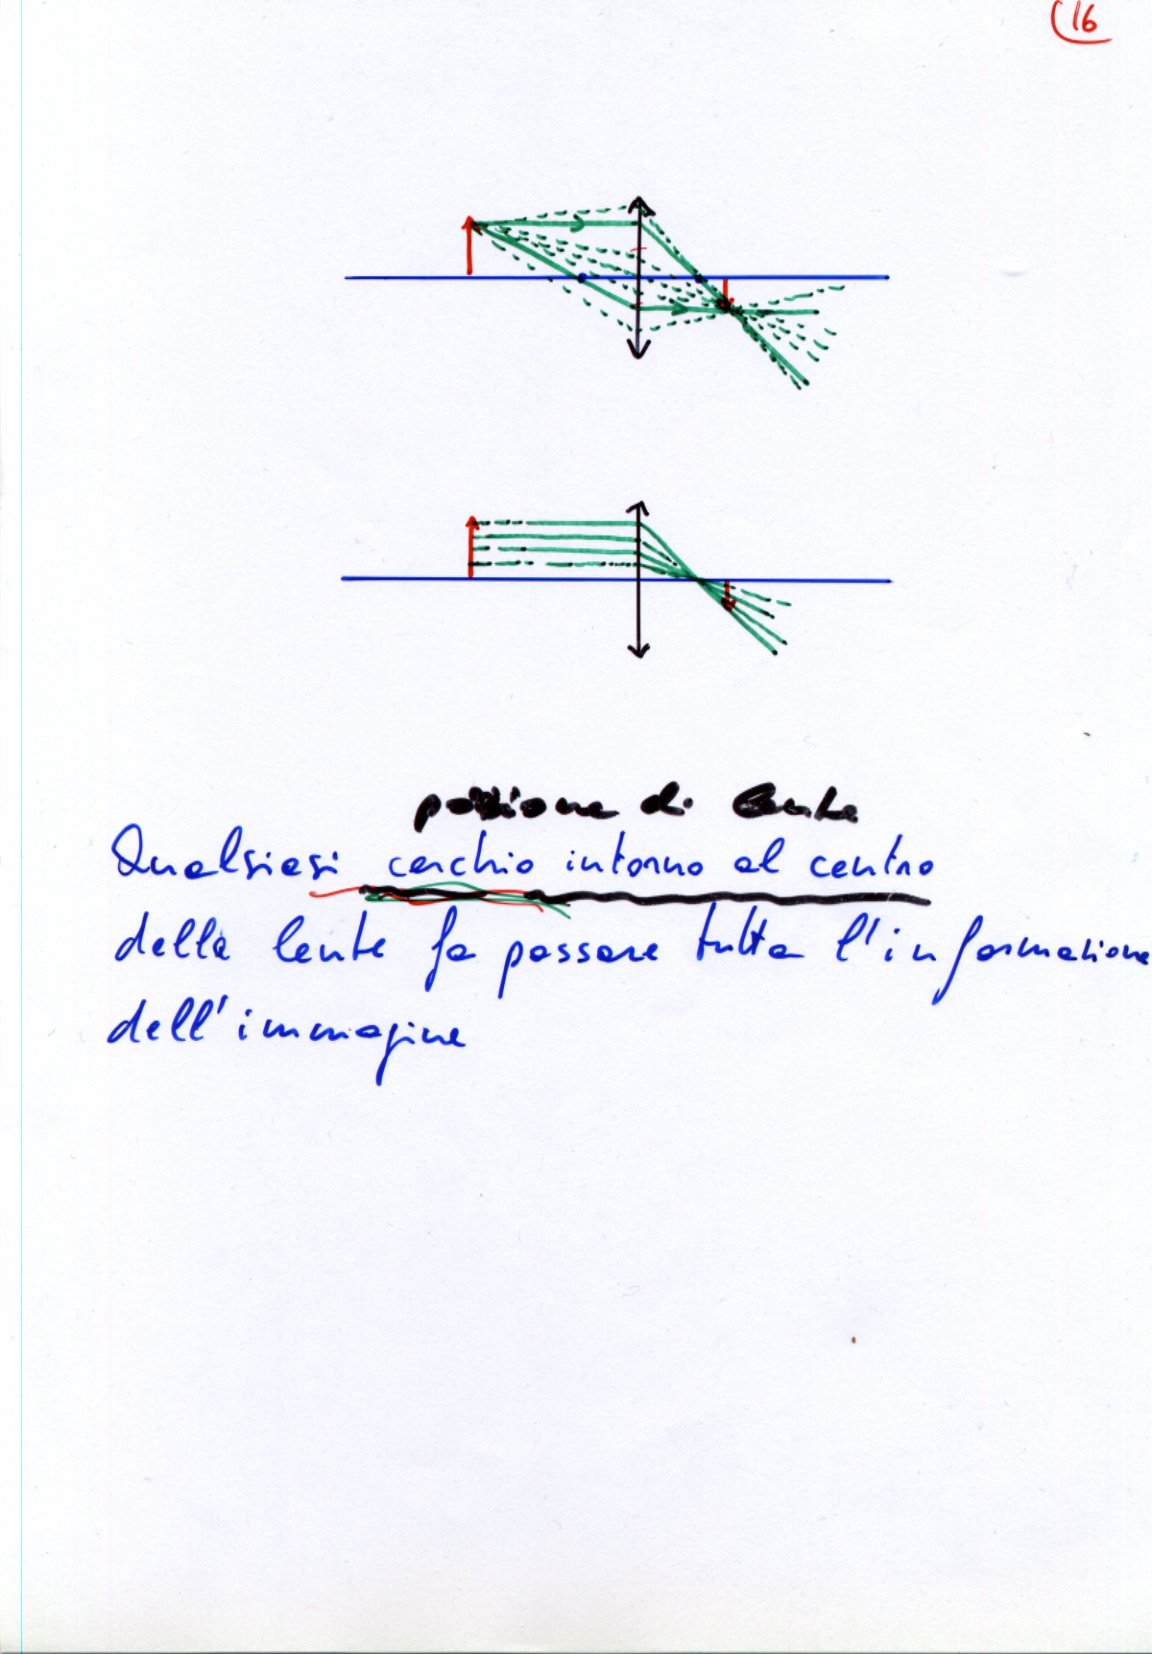 16
porzione di lente
Qualsiasi cerchio intorno al centro
della lente fa passare tutta l'informazione
dell'immagine